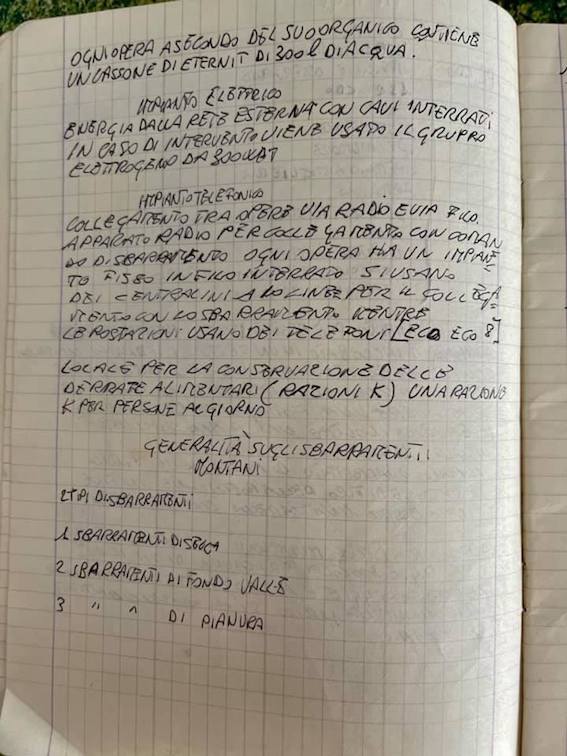 OGNI OPERA A SECONDO DEL SUO ORGANICO CONTIENE
UN CASSONE DI ETERNIT DI 300 l DI ACQUA.
IMPIANTO ELETTRICO
ENERGIA DALLA RETE ESTERNA CON CAVI INTERRATI
IN CASO DI INTERVENTO VIENE USATO IL GRUPPO
ELETTROGENO DA 300 WAT
IMPIANTO TELEFONICO
COLLEGAMENTO TRA OPERE VIA RADIO E VIA FILO.
APPARATO RADIO PER COLLEGAMENTO CON COMAN
DO DI SBARRAMENTO OGNI OPERA HA UN IMPIAN=
TO FISSO IN FILO INTERRATO SI USANO
DEI CENTRALINI A 10 LINEE PER IL COLLEGA=
MENTO CON LO SBARRAMENTO MENTRE
LE POSTAZIONI USANO DEI TELEFONI [ECO ECO 8]
LOCALE PER LA CONSERVAZIONE DELLE
DERRATE ALIMENTARI (RAZIONI K) UNA RAZIONE
K PER PERSONE AL GIORNO
GENERALITÀ SUGLI SBARRAMENTI
MONTANI
2 TIPI DI SBARRAMENTI
1 SBARRAMENTI DI
2 SBARRAMENTI DI FONDO VALLE
3 " " DI PIANURA